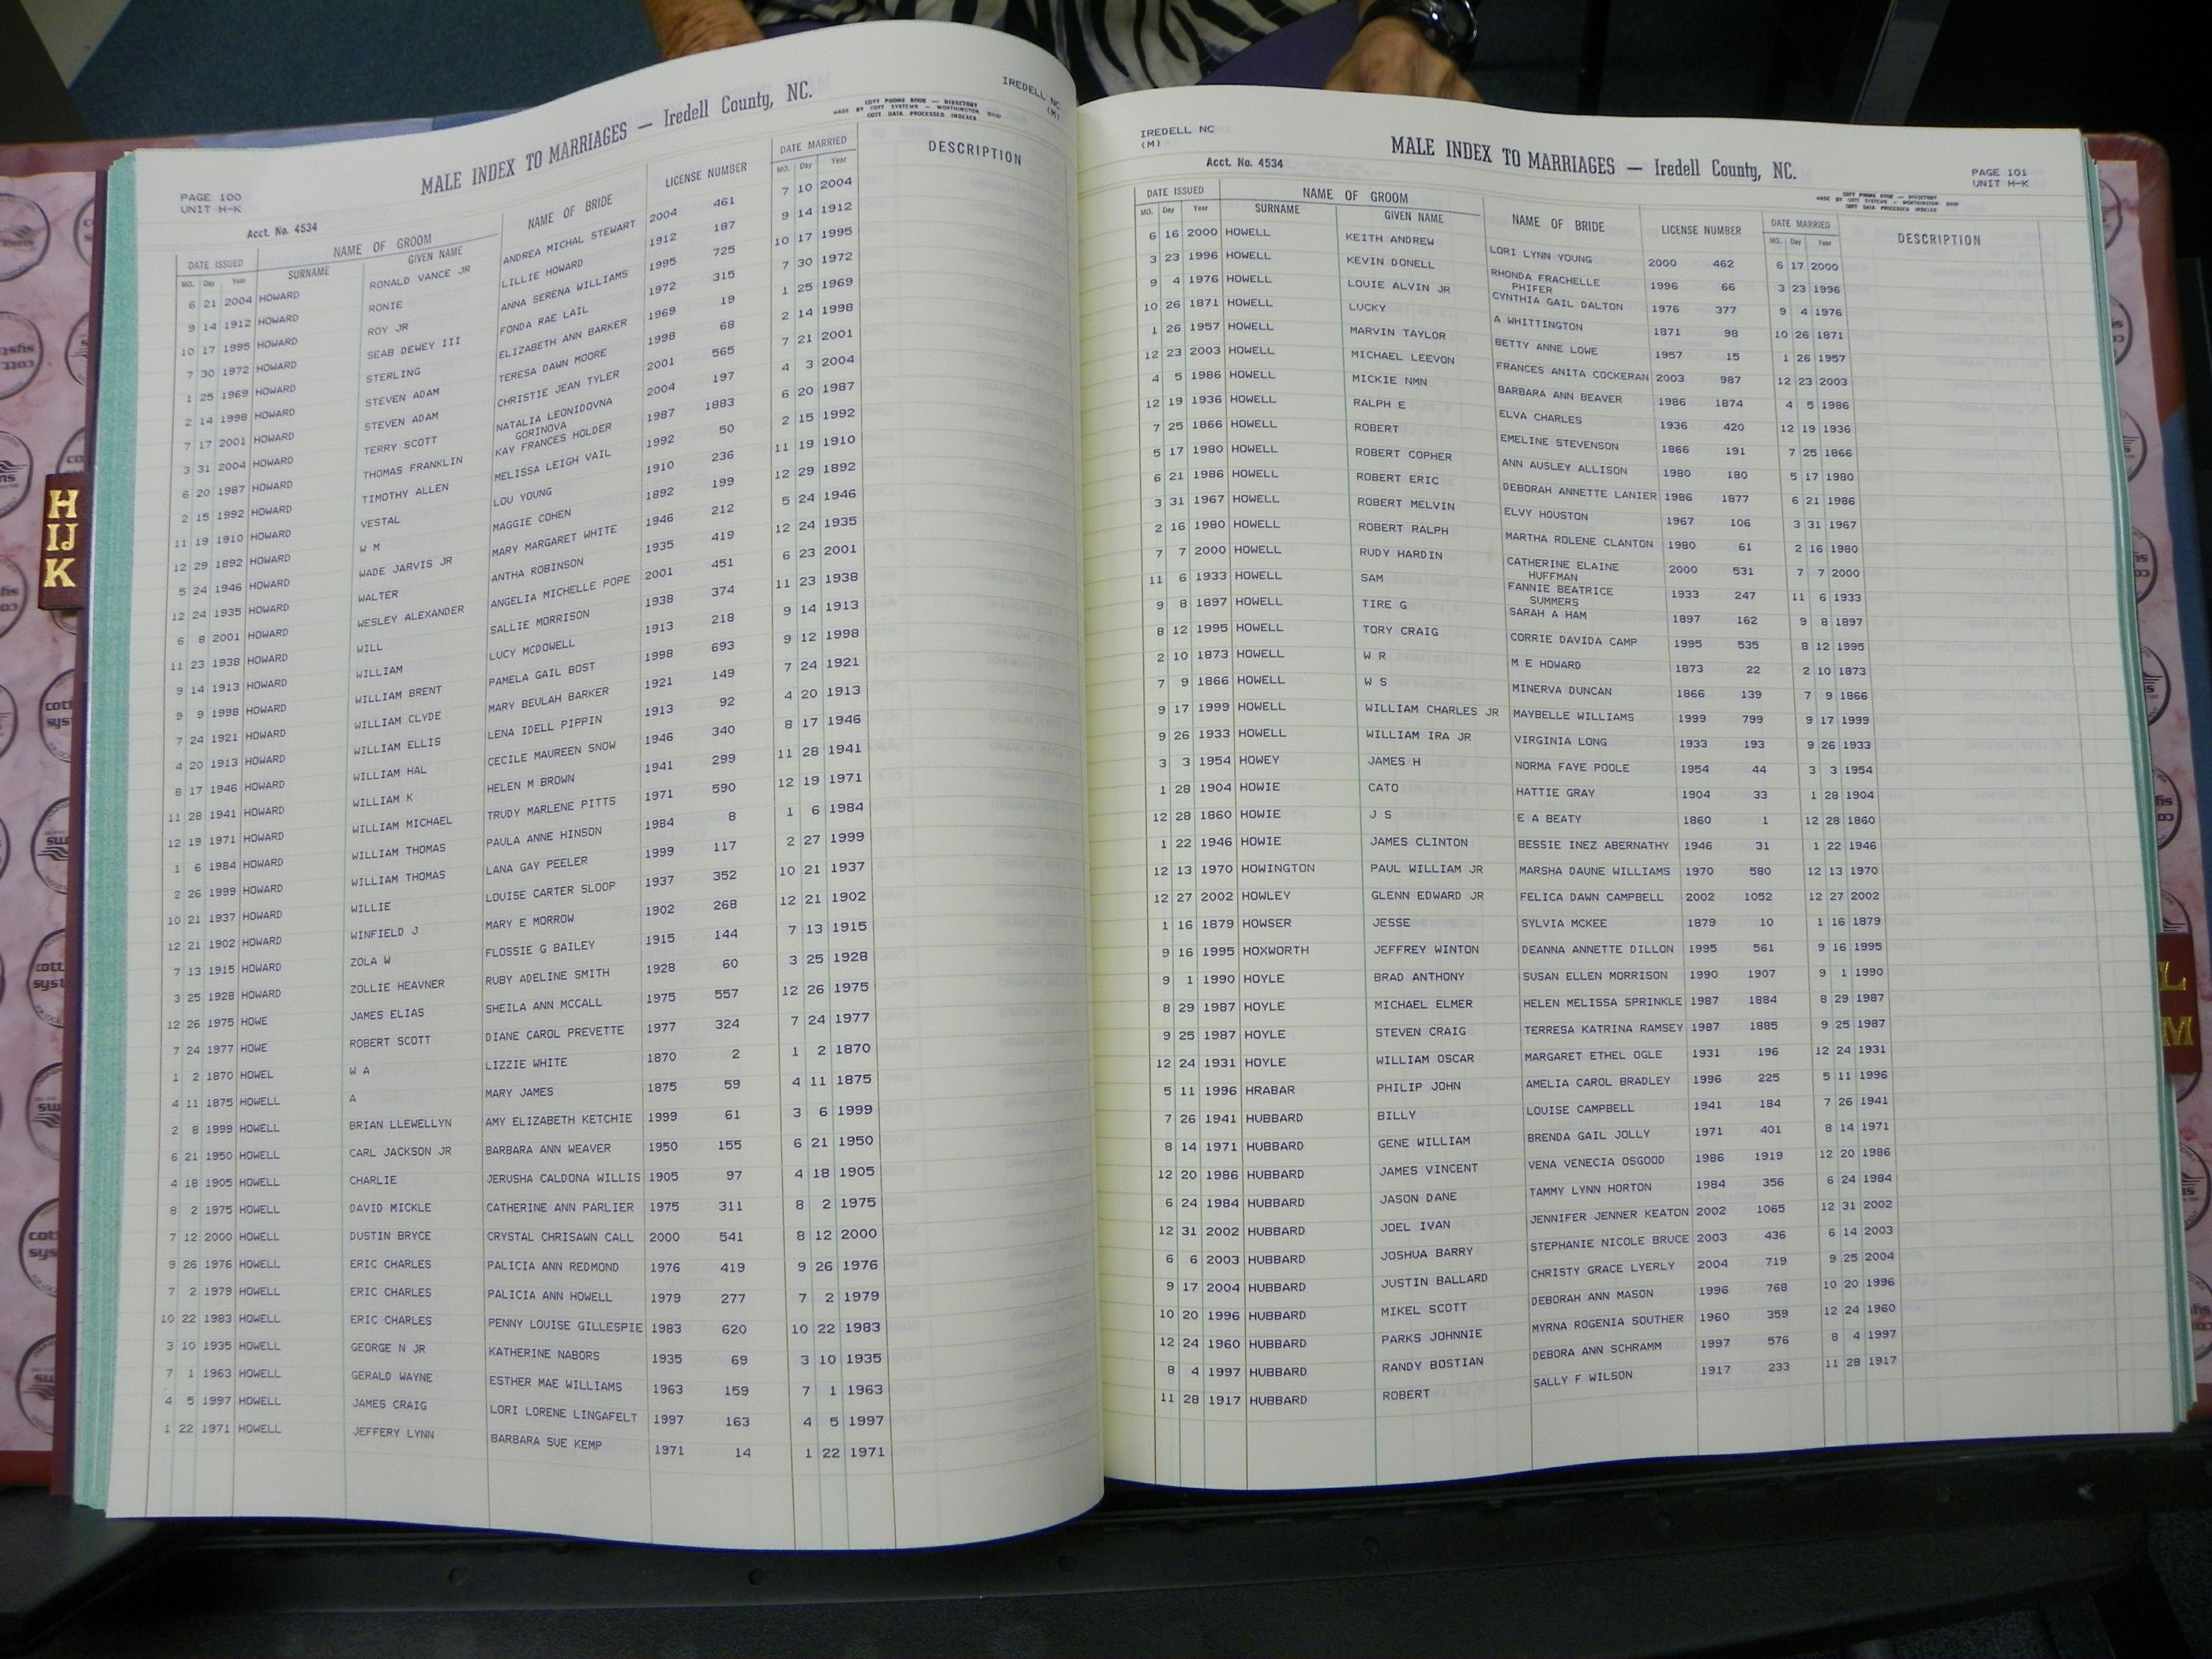 PAGE 100
UNIT H-K
MALE INDEX TO MARRIAGES — Iredell County, NC.
COTT PHONE BOOK — DIRECTORY
MADE BY COTT SYSTEMS — WORTHINGTON, OHIO
COTT DATA PROCESSED INDEXES
IREDELL NC
(M)
Acct. No. 4534
DATE ISSUED NAME OF GROOM NAME OF BRIDE LICENSE NUMBER DATE MARRIED DESCRIPTION
MO. Day Year SURNAME GIVEN NAME MO. Day Year
6 21 2004 HOWARD RONALD VANCE JR ANDREA MICHAL STEWART 2004 461 7 10 2004
9 14 1912 HOWARD RONIE LILLIE HOWARD 1912 187 9 14 1912
10 17 1995 HOWARD ROY JR ANNA SERENA WILLIAMS 1995 725 10 17 1995
7 30 1972 HOWARD SEAB DEWEY III FONDA RAE LAIL 1972 315 7 30 1972
1 25 1969 HOWARD STERLING ELIZABETH ANN BARKER 1969 19 1 25 1969
2 14 1998 HOWARD STEVEN ADAM TERESA DAWN MOORE 1998 68 2 14 1998
7 17 2001 HOWARD STEVEN ADAM CHRISTIE JEAN TYLER 2001 565 7 21 2001
3 31 2004 HOWARD TERRY SCOTT NATALIA LEONIDOVNA 2004 197 4 3 2004
GORINOVA
6 20 1987 HOWARD THOMAS FRANKLIN KAY FRANCES HOLDER 1987 1883 6 20 1987
2 15 1992 HOWARD TIMOTHY ALLEN MELISSA LEIGH VAIL 1992 50 2 15 1992
11 19 1910 HOWARD VESTAL LOU YOUNG 1910 236 11 19 1910
12 29 1892 HOWARD W M MAGGIE COHEN 1892 199 12 29 1892
5 24 1946 HOWARD WADE JARVIS JR MARY MARGARET WHITE 1946 212 5 24 1946
12 24 1935 HOWARD WALTER ANTHA ROBINSON 1935 419 12 24 1935
6 8 2001 HOWARD WESLEY ALEXANDER ANGELIA MICHELLE POPE 2001 451 6 23 2001
11 23 1938 HOWARD WILL SALLIE MORRISON 1938 374 11 23 1938
9 14 1913 HOWARD WILLIAM LUCY MCDOWELL 1913 218 9 14 1913
9 9 1998 HOWARD WILLIAM BRENT PAMELA GAIL BOST 1998 693 9 12 1998
7 24 1921 HOWARD WILLIAM CLYDE MARY BEULAH BARKER 1921 149 7 24 1921
4 20 1913 HOWARD WILLIAM ELLIS LENA IDELL PIPPIN 1913 92 4 20 1913
8 17 1946 HOWARD WILLIAM HAL CECILE MAUREEN SNOW 1946 340 8 17 1946
11 28 1941 HOWARD WILLIAM K HELEN M BROWN 1941 299 11 28 1941
12 19 1971 HOWARD WILLIAM MICHAEL TRUDY MARLENE PITTS 1971 590 12 19 1971
1 6 1984 HOWARD WILLIAM THOMAS PAULA ANNE HINSON 1984 8 1 6 1984
2 26 1999 HOWARD WILLIAM THOMAS LANA GAY PEELER 1999 117 2 27 1999
10 21 1937 HOWARD WILLIE LOUISE CARTER SLOOP 1937 352 10 21 1937
12 21 1902 HOWARD WINFIELD J MARY E MORROW 1902 268 12 21 1902
7 13 1915 HOWARD ZOLA W FLOSSIE G BAILEY 1915 144 7 13 1915
3 25 1928 HOWARD ZOLLIE HEAVNER RUBY ADELINE SMITH 1928 60 3 25 1928
12 26 1975 HOWE JAMES ELIAS SHEILA ANN MCCALL 1975 557 12 26 1975
7 24 1977 HOWE ROBERT SCOTT DIANE CAROL PREVETTE 1977 324 7 24 1977
1 2 1870 HOWEL W A LIZZIE WHITE 1870 2 1 2 1870
4 11 1875 HOWELL A MARY JAMES 1875 59 4 11 1875
2 8 1999 HOWELL BRIAN LLEWELLYN AMY ELIZABETH KETCHIE 1999 61 3 6 1999
6 21 1950 HOWELL CARL JACKSON JR BARBARA ANN WEAVER 1950 155 6 21 1950
4 18 1905 HOWELL CHARLIE JERUSHA CALDONA WILLIS 1905 97 4 18 1905
8 2 1975 HOWELL DAVID MICKLE CATHERINE ANN PARLIER 1975 311 8 2 1975
7 12 2000 HOWELL DUSTIN BRYCE CRYSTAL CHRISAWN CALL 2000 541 8 12 2000
9 26 1976 HOWELL ERIC CHARLES PALICIA ANN REDMOND 1976 419 9 26 1976
7 2 1979 HOWELL ERIC CHARLES PALICIA ANN HOWELL 1979 277 7 2 1979
10 22 1983 HOWELL ERIC CHARLES PENNY LOUISE GILLESPIE 1983 620 10 22 1983
3 10 1935 HOWELL GEORGE N JR KATHERINE NABORS 1935 69 3 10 1935
7 1 1963 HOWELL GERALD WAYNE ESTHER MAE WILLIAMS 1963 159 7 1 1963
4 5 1997 HOWELL JAMES CRAIG LORI LORENE LINGAFELT 1997 163 4 5 1997
1 22 1971 HOWELL JEFFERY LYNN BARBARA SUE KEMP 1971 14 1 22 1971
H
IJ
K
IREDELL NC
(M)
Acct. No. 4534
MALE INDEX TO MARRIAGES — Iredell County, NC.
PAGE 101
UNIT H-K
COTT PHONE BOOK — DIRECTORY
MADE BY COTT SYSTEMS — WORTHINGTON, OHIO
COTT DATA PROCESSED INDEXES
DATE ISSUED NAME OF GROOM NAME OF BRIDE LICENSE NUMBER DATE MARRIED DESCRIPTION
MO. Day Year SURNAME GIVEN NAME MO. Day Year
6 16 2000 HOWELL KEITH ANDREW LORI LYNN YOUNG 2000 462 6 17 2000
3 23 1996 HOWELL KEVIN DONELL RHONDA FRACHELLE 1996 66 3 23 1996
PHIFER
9 4 1976 HOWELL LOUIE ALVIN JR CYNTHIA GAIL DALTON 1976 377 9 4 1976
10 26 1871 HOWELL LUCKY A WHITTINGTON 1871 98 10 26 1871
1 26 1957 HOWELL MARVIN TAYLOR BETTY ANNE LOWE 1957 15 1 26 1957
12 23 2003 HOWELL MICHAEL LEEVON FRANCES ANITA COCKERAN 2003 987 12 23 2003
4 5 1986 HOWELL MICKIE NMN BARBARA ANN BEAVER 1986 1874 4 5 1986
12 19 1936 HOWELL RALPH E ELVA CHARLES 1936 420 12 19 1936
7 25 1866 HOWELL ROBERT EMELINE STEVENSON 1866 191 7 25 1866
5 17 1980 HOWELL ROBERT COPHER ANN AUSLEY ALLISON 1980 180 5 17 1980
6 21 1986 HOWELL ROBERT ERIC DEBORAH ANNETTE LANIER 1986 1877 6 21 1986
3 31 1967 HOWELL ROBERT MELVIN ELVY HOUSTON 1967 106 3 31 1967
2 16 1980 HOWELL ROBERT RALPH MARTHA ROLENE CLANTON 1980 61 2 16 1980
7 7 2000 HOWELL RUDY HARDIN CATHERINE ELAINE 2000 531 7 7 2000
HUFFMAN
11 6 1933 HOWELL SAM FANNIE BEATRICE 1933 247 11 6 1933
SUMMERS
9 8 1897 HOWELL TIRE G SARAH A HAM 1897 162 9 8 1897
8 12 1995 HOWELL TORY CRAIG CORRIE DAVIDA CAMP 1995 535 8 12 1995
2 10 1873 HOWELL W R M E HOWARD 1873 22 2 10 1873
7 9 1866 HOWELL W S MINERVA DUNCAN 1866 139 7 9 1866
9 17 1999 HOWELL WILLIAM CHARLES JR MAYBELLE WILLIAMS 1999 799 9 17 1999
9 26 1933 HOWELL WILLIAM IRA JR VIRGINIA LONG 1933 193 9 26 1933
3 3 1954 HOWEY JAMES H NORMA FAYE POOLE 1954 44 3 3 1954
1 28 1904 HOWIE CATO HATTIE GRAY 1904 33 1 28 1904
12 28 1860 HOWIE J S E A BEATY 1860 1 12 28 1860
1 22 1946 HOWIE JAMES CLINTON BESSIE INEZ ABERNATHY 1946 31 1 22 1946
12 13 1970 HOWINGTON PAUL WILLIAM JR MARSHA DAUNE WILLIAMS 1970 580 12 13 1970
12 27 2002 HOWLEY GLENN EDWARD JR FELICA DAWN CAMPBELL 2002 1052 12 27 2002
1 16 1879 HOWSER JESSE SYLVIA MCKEE 1879 10 1 16 1879
9 16 1995 HOXWORTH JEFFREY WINTON DEANNA ANNETTE DILLON 1995 561 9 16 1995
9 1 1990 HOYLE BRAD ANTHONY SUSAN ELLEN MORRISON 1990 1907 9 1 1990
8 29 1987 HOYLE MICHAEL ELMER HELEN MELISSA SPRINKLE 1987 1884 8 29 1987
9 25 1987 HOYLE STEVEN CRAIG TERRESA KATRINA RAMSEY 1987 1885 9 25 1987
12 24 1931 HOYLE WILLIAM OSCAR MARGARET ETHEL OGLE 1931 196 12 24 1931
5 11 1996 HRABAR PHILIP JOHN AMELIA CAROL BRADLEY 1996 225 5 11 1996
7 26 1941 HUBBARD BILLY LOUISE CAMPBELL 1941 184 7 26 1941
8 14 1971 HUBBARD GENE WILLIAM BRENDA GAIL JOLLY 1971 401 8 14 1971
12 20 1986 HUBBARD JAMES VINCENT VENA VENECIA OSGOOD 1986 1919 12 20 1986
6 24 1984 HUBBARD JASON DANE TAMMY LYNN HORTON 1984 356 6 24 1984
12 31 2002 HUBBARD JOEL IVAN JENNIFER JENNER KEATON 2002 1065 12 31 2002
6 6 2003 HUBBARD JOSHUA BARRY STEPHANIE NICOLE BRUCE 2003 436 6 14 2003
9 17 2004 HUBBARD JUSTIN BALLARD CHRISTY GRACE LYERLY 2004 719 9 25 2004
10 20 1996 HUBBARD MIKEL SCOTT DEBORAH ANN MASON 1996 768 10 20 1996
12 24 1960 HUBBARD PARKS JOHNNIE MYRNA ROGENIA SOUTHER 1960 359 12 24 1960
8 4 1997 HUBBARD RANDY BOSTIAN DEBORA ANN SCHRAMM 1997 576 8 4 1997
11 28 1917 HUBBARD ROBERT SALLY F WILSON 1917 233 11 28 1917
L
M